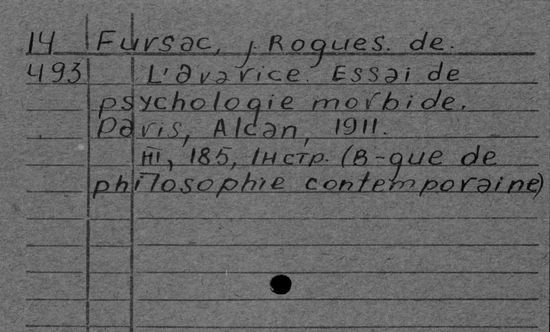 14 Fursac, J. Rogues. de.
493 L'avarice. Essai de
psychologie morbide.
Paris, Alcan, 1911.
III, 185, 1нстр. (B-que de
philosophie contemporaine)